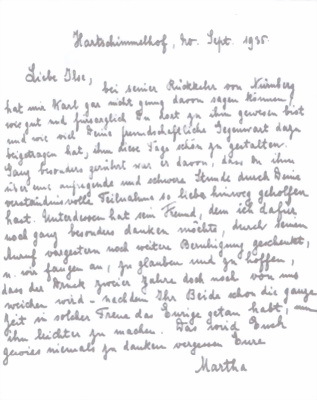 Hartschimmelhof, 20. Sept. 1935.
Liebe Ilse,
bei seiner Rückkehr von Nürnberg
hat mir Karl gar nicht genug davon sagen können,
wie gut und fürsorglich Du zu ihm gewesen bist
und wie viel Deine freundschaftliche Gegenwart dazu
beigetragen hat, ihm diese Tage schön zu gestalten.
Ganz besonders gerührt war er davon, dass Du ihm
über eine aufregende und schwere Stunde durch Deine
verständnisvolle Teilnahme so lieb hinweg geholfen
hast. Unterdessen hat sein Freund, dem ich dafür
noch ganz besonders danken möchte, durch seinen
Anruf vorgestern noch weitere Beruhigung geschenkt,
u. wir fangen an, zu glauben und zu hoffen,
dass der Druck zweier Jahre doch noch von uns
weichen wird – nachdem Ihr Beide schon die ganze
Zeit in solcher Treue das Eurige getan habt, um
ihn leichter zu machen. Das wird Euch
gewiss niemals zu danken vergessen Eure
Martha